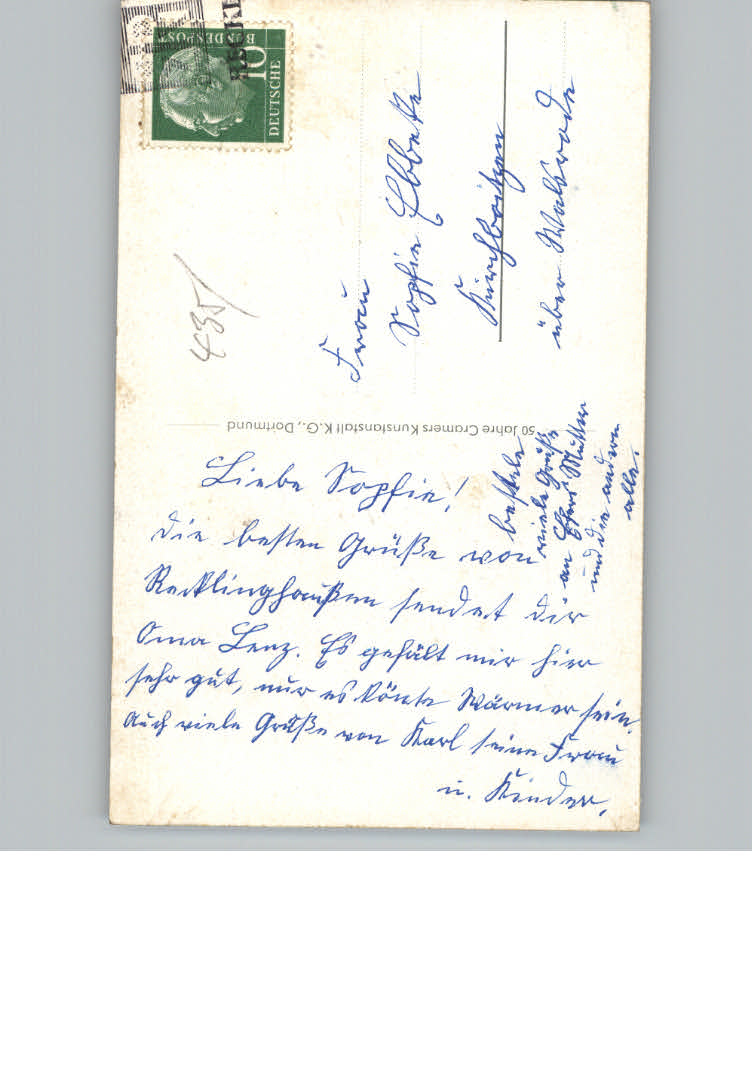 DEUTSCHE
BUNDESPOST
10
RECKL
435
Frau
Sophie Ebbeke
Kirchboitzen
über Walsrode
50 Jahre Cramers Kunstanstalt K.G., Dortmund
Liebe Sophie!
Die besten Grüße von
Recklinghaußen sendet dir
Oma Lenz. Es gefält mir hier
sehr gut, nur es könte Wärmer sein.
Auch viele Grüße von Karl seine Frau
u. Kinder.
bestele
viele Grüße
an Mutter
und die andern
alle.